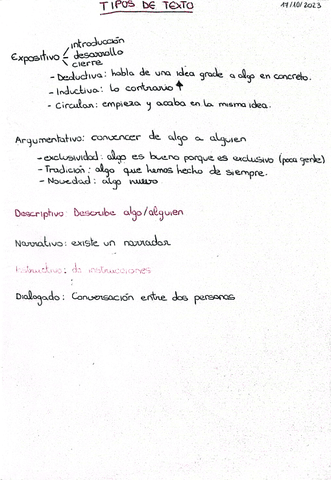 TIPOS DE TEXTO 17/10/2023
introducción
Expositivo desarrollo
cierre
- Deductiva: habla de una idea grade a algo en concreto.
- Inductiva: lo contrario ↑
- Circular: empieza y acaba en la misma idea.
Argumentativo: convencer de algo a alguien
- exclusividad: algo es bueno porque es exclusivo (poca gente)
- Tradición: algo que hemos hecho de siempre.
- Novedad: algo nuevo
Descriptivo: Describe algo/alguien
Narrativo: existe un narrador
Instructivo: da instrucciones
Dialogado: Conversación entre dos personas